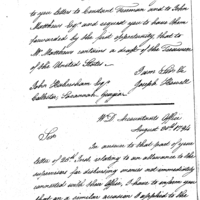 to you letter to Constant Freeman and to John
Matthews Esqr and request you to have them
forwarded by the first opportunity that to
Mr Matthews contains a draft of the Treasurer
of the United States.
I am Sir &c
John Habersham Esqr
Joseph Howell
Collector, Savannah, Georgia
W.D. Accountants Office
August 20th 1794
Sir
In answer to that part of your
letter of 20th Inst. relating to an allowance to the
for disbursing monies not immediately
connected with their Office, I have to inform you
that on a similar occasion I applied to the